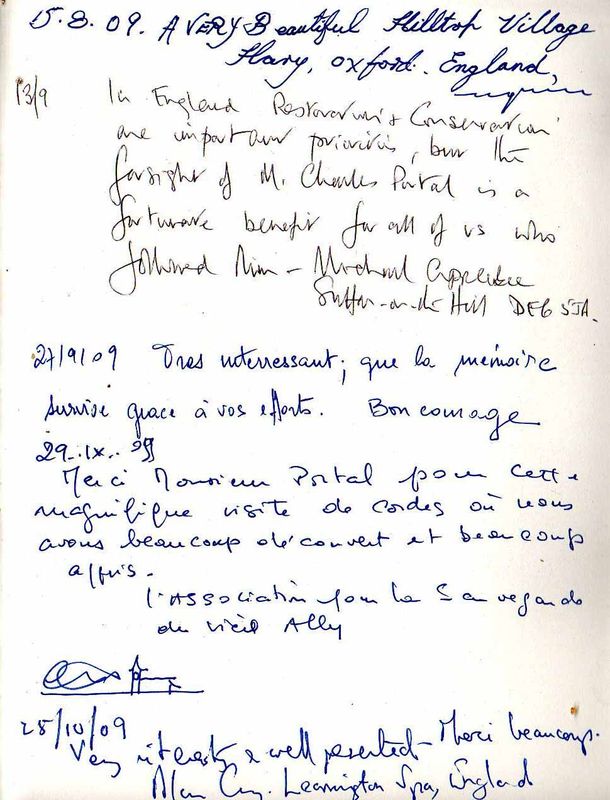 15.8.09. A VERY Beautiful Hilltop Village
Oxford. England,
13/9 In England Restoration & Conservation
are important priorities, but the
farsight of M. Charles Portal is a
fortunate benefit for all of us who
followed him – Michael
Sutton-on-the Hill DE6 5JA.
27/9/09 Tres interressant; que la mémoire
survive grace à vos efforts. Bon courage
29.IX.09
Merci Monsieur Portal pour cette
magnifique visite de Cordes où nous
avons beaucoup découvert et beaucoup
appris.
l'Association pour la Sauvegarde
du vieil Ally
25/10/09
Very interesting & well presented – Merci beaucoup.
Alan Leamington Spa, England